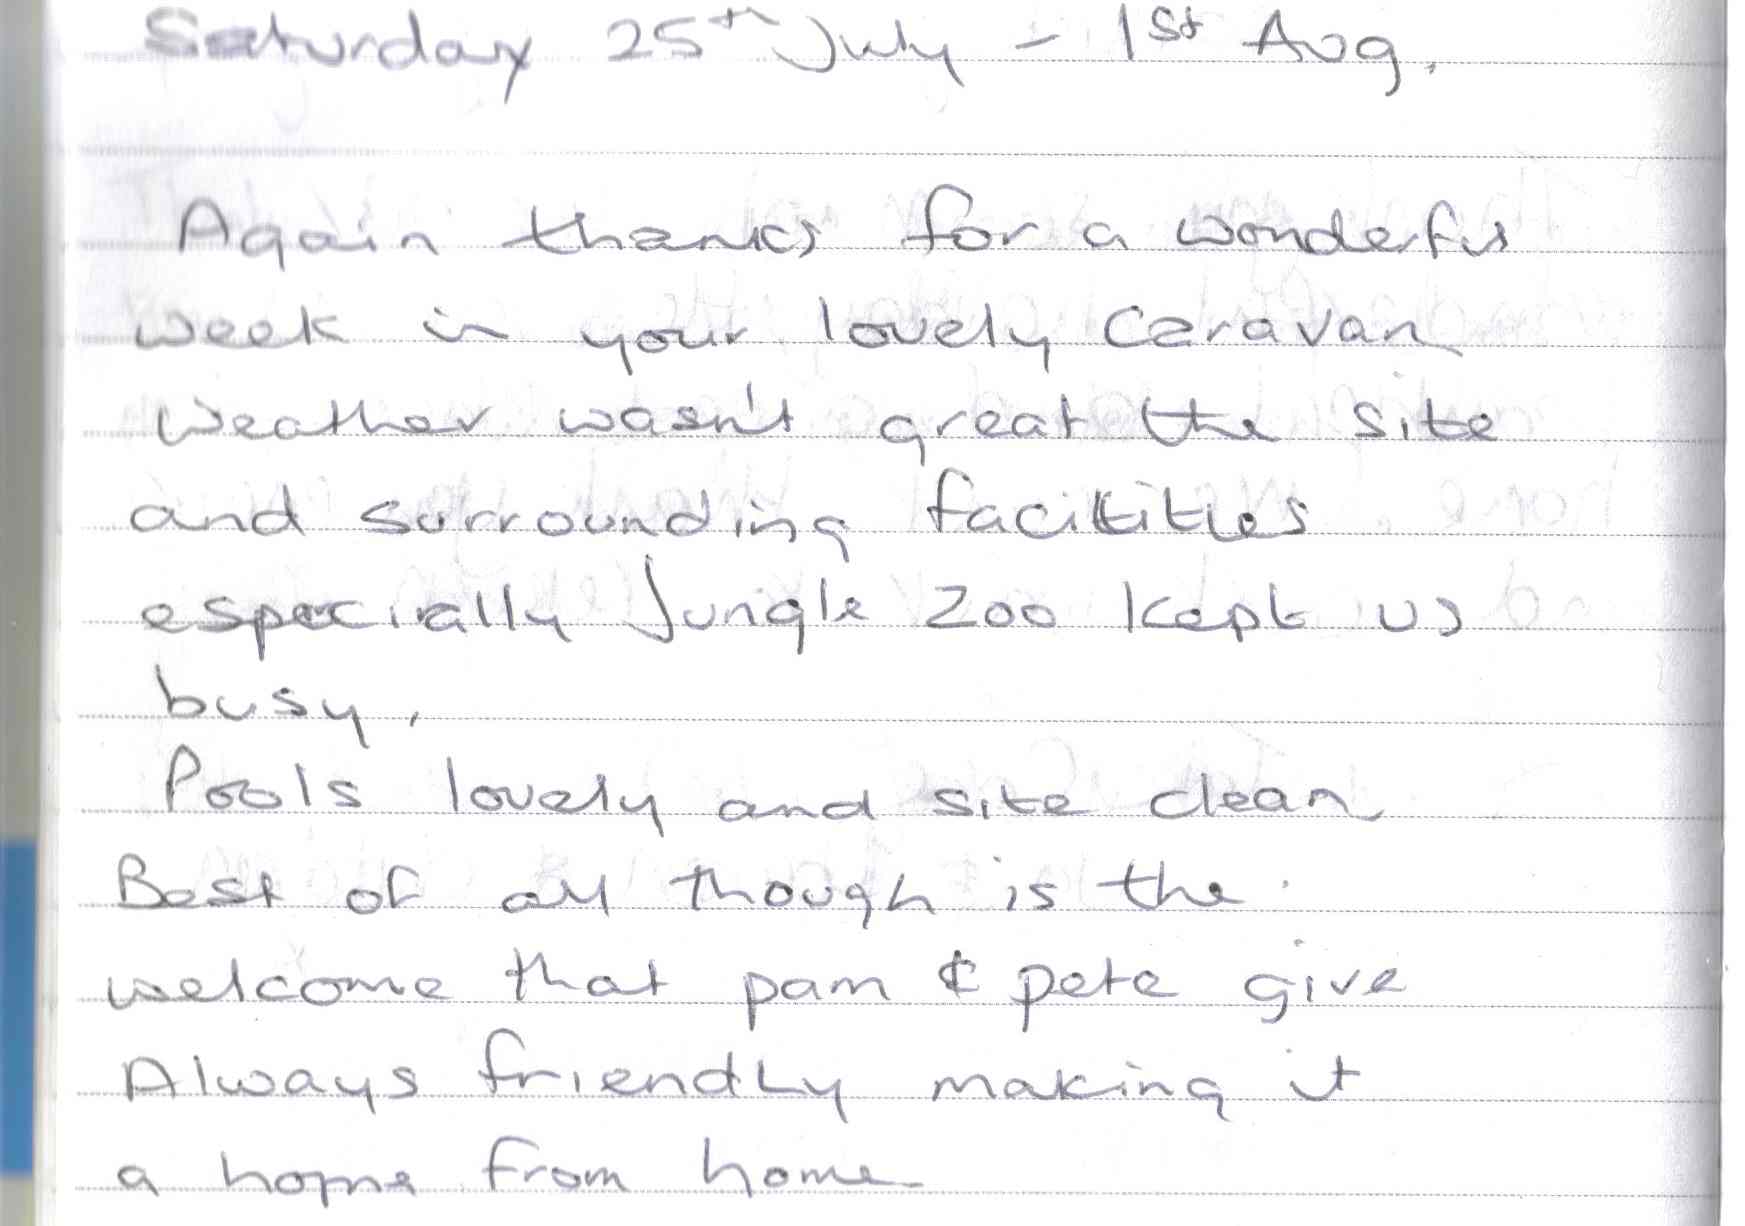 Saturday 25th July - 1st Aug.
Again thanks for a wonderful
week in your lovely caravan
Weather wasn't great the site
and surrounding facilities
especially Jungle Zoo kept us
busy.
Pools lovely and site clean
Best of all though is the
welcome that pam & pete give
Always friendly making it
a home from home